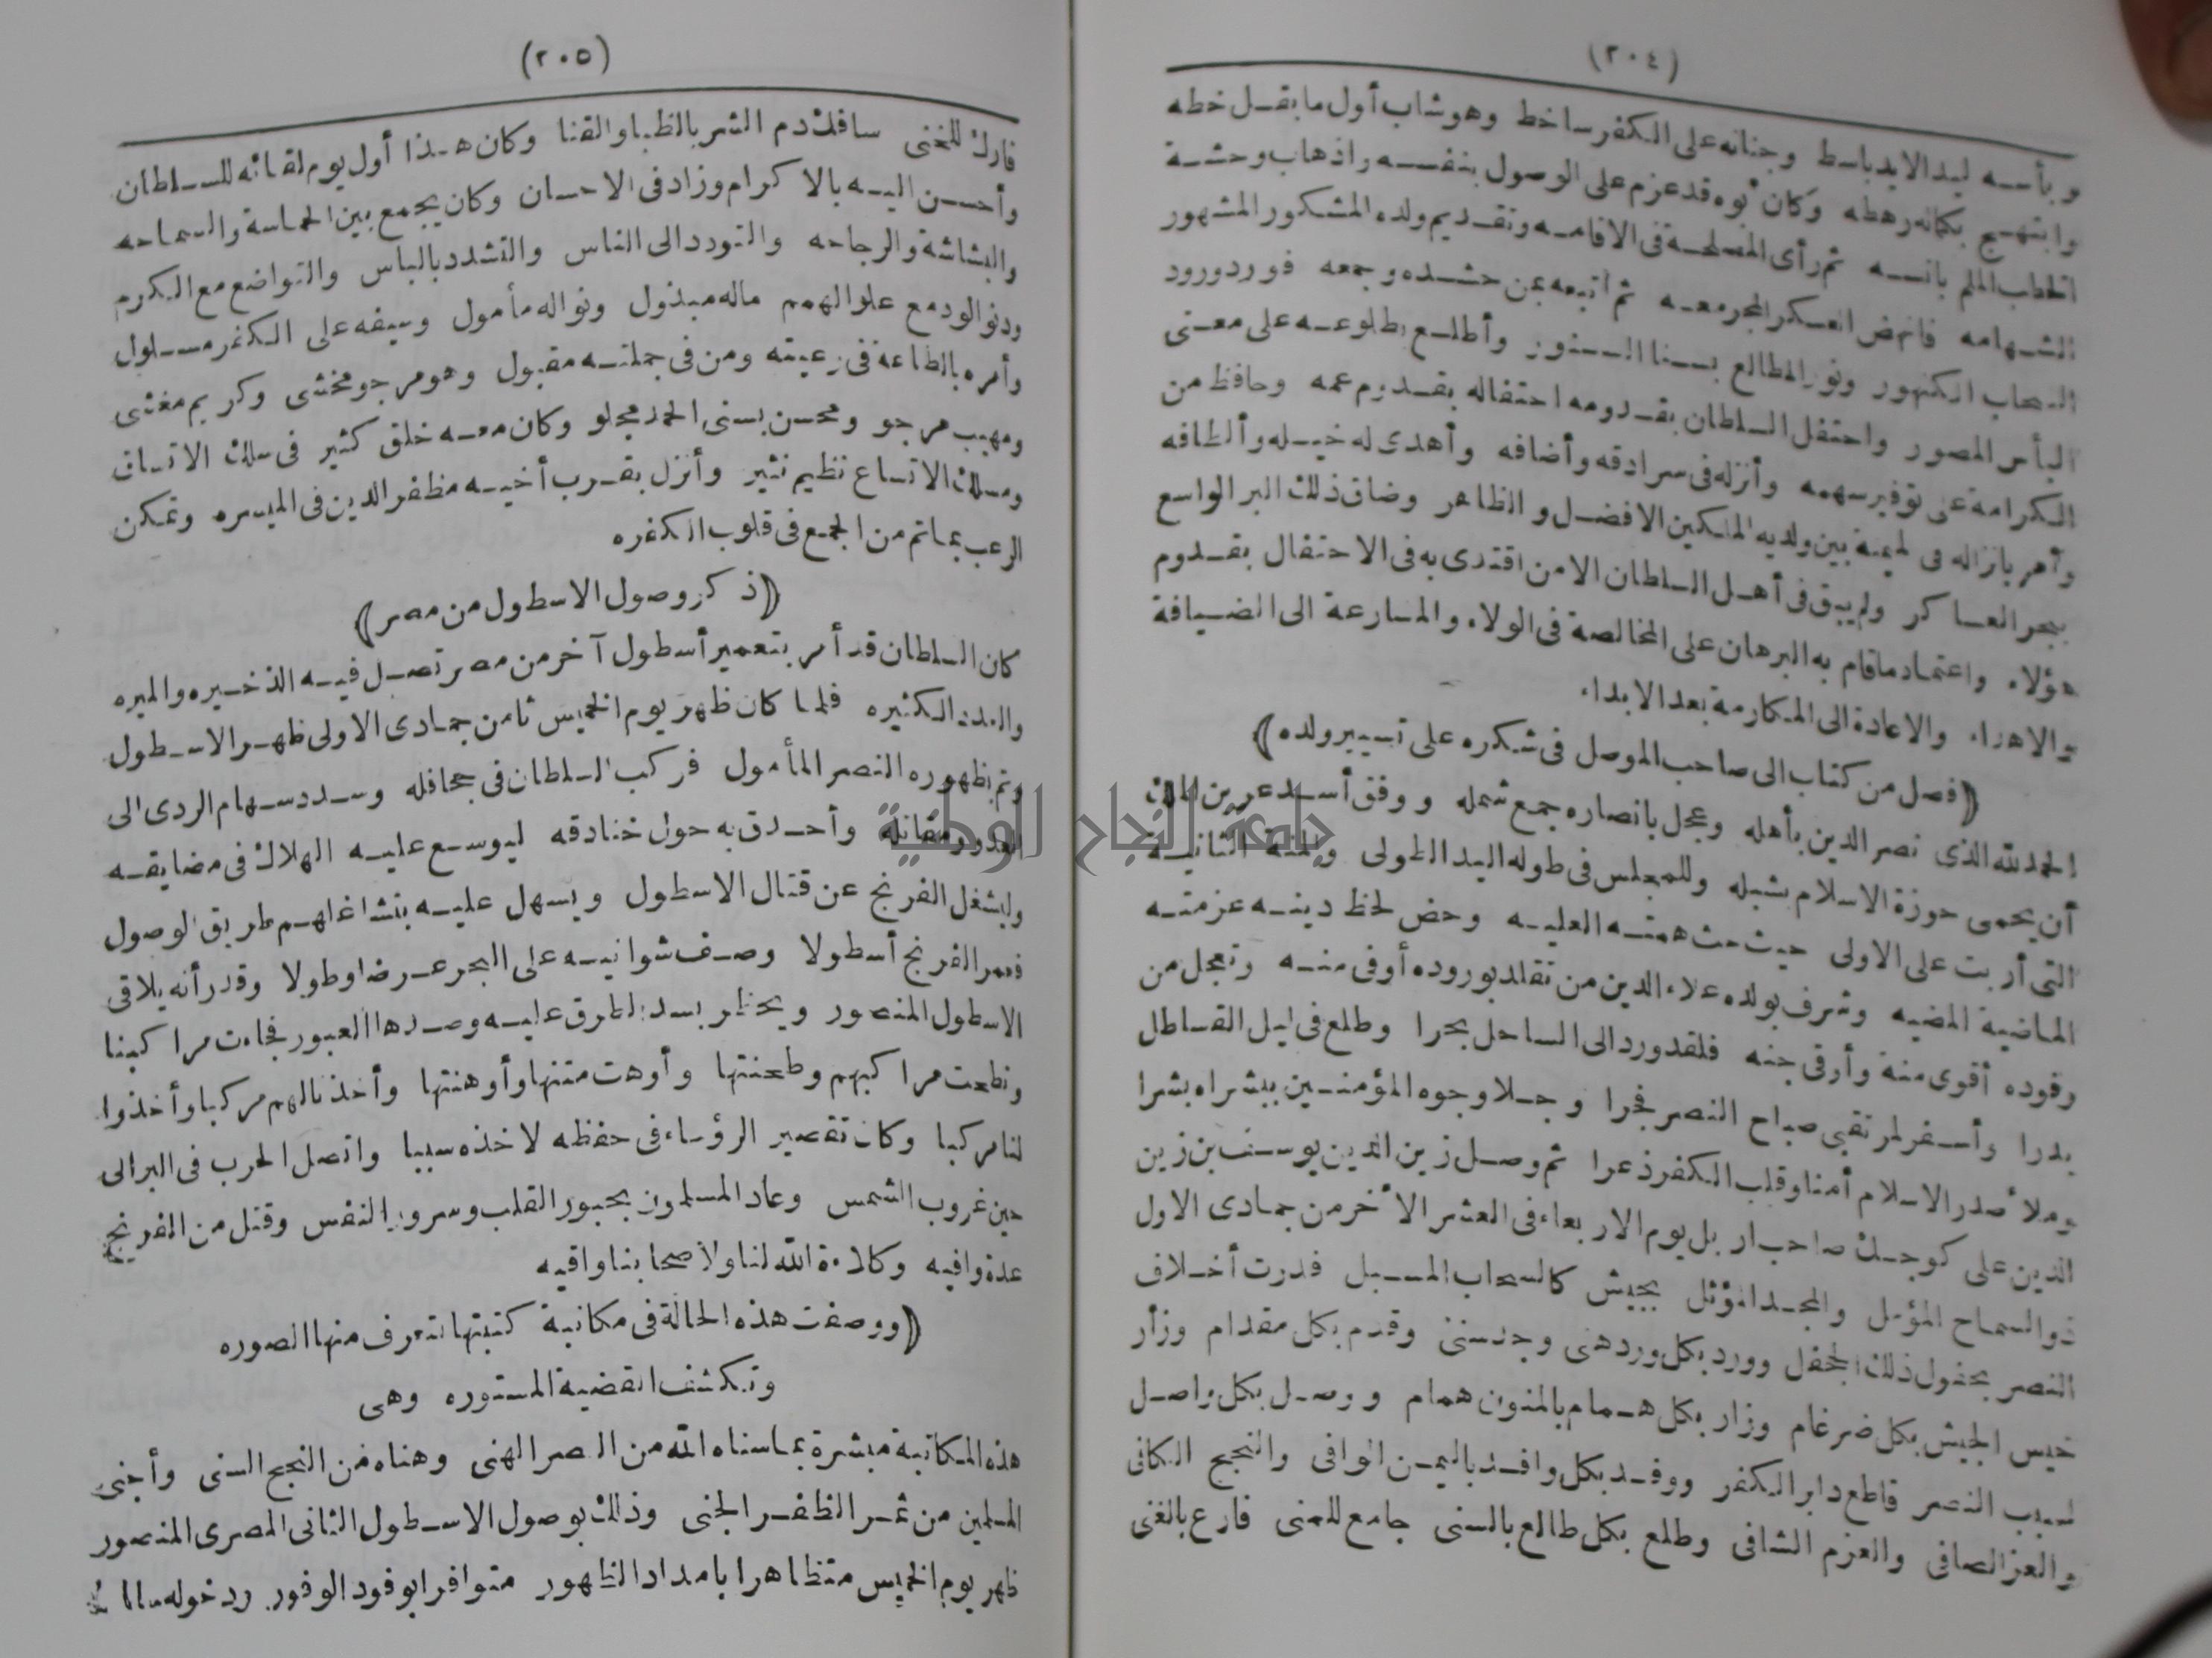 (٢٠٤)
وبأسه ليد الايد باسط وجنانه على الكفر ساخط وهو شاب أول ما بقل خطه
وابتهج بكماله رهطه وكان أبوه قد عزم على الوصول بنفسه واذهاب وحشة
الخطب الملم بانسه ثم رأى المصلحة فى الاقامه وتقديم ولده المشكور المشهور
الشهامه فانهض العسكر المجر معه ثم أتبعه بمن حشده وجمعه فورد ورود
السحاب الكنهور ونور المطالع بسنا السنور وأطلع بطلوعه على معنى
البأس المصور واحتفل السلطان بقدومه احتفاله بقدوم عمه وحافظ من
الكرامة على توفير سهمه وأنزله فى سرادقه وأضافه وأهدى له خيله وألطافه
وأمر بانزاله فى الميمنة بين ولديه الملكين الافضل والظاهر وضاق ذلك البر الواسع
ببحر العساكر ولم يبق فى أهل السلطان الا من اقتدى به فى الاحتفال بقدوم
هؤلاء واعتماد ما قام به البرهان على المخالصة فى الولاء والمسارعة الى الضيافة
والاهداء والاعادة الى المكارمة بعد الابداء
(فصل من كتاب الى صاحب الموصل فى شكره على تسيير ولده)
الحمد لله الذى نصر الدين بأهله وعجل بانصاره جمع شمله ووفق أسد عرين الملك
أن يحمى حوزة الاسلام بشبله وللمجلس فى طوله اليد الطولى والمنة الثانية
التى أربت على الاولى حيث حث همته العليه وحض لحظ دينه عزمته
الماضية المضيه وشرف بولده علاء الدين من تقلد بوروده أوفى منه وتعجل من
وفوده أقوى منة وأرقى جنه فلقد ورد الى الساحل بحرا وطلع فى ليل القساطل
بدرا وأسفر لمرتقبى صباح النصر فجرا وجلا وجوه المؤمنين ببشراه بشرا
وملأ صدر الاسلام أمنا وقلب الكفر ذعرا ثم وصل زين الدين يوسف بن زين
الدين على كوجك صاحب اربل يوم الاربعاء فى العشر الأخر من جمادى الاول
ذو السماح المؤمل والمجد المؤثل بجيش كالسحاب المسبل فدرت أخلاف
النصر بحفول ذلك الجحفل وورد بكل ورد هنى وجد سنى وقدم بكل مقدام وزأر
خيس الجيش بكل ضرغام وزار بكل همام بالمنون همام ووصل بكل واصل
لسبب النصر قاطع دابر الكفر ووفد بكل وافد باليمن الوافى والنجح الكافى
والعز الصافى والعزم الشافى وطلع بكل طالع بالسنى جامع للمنى قارع بالغنى
(٢٠٥)
فارك للخنى سافك دم الشر بالظبا والقنا وكان هذا أول يوم لقائه للسلطان
وأحسن اليه بالاكرام وزاد فى الاحسان وكان يجمع بين الحماسة والسماحه
والبشاشة والرجاحه والتودد الى الناس والتشدد بالباس والتواضع مع الكرم
ودنو الود مع علو الهمم ماله مبذول ونواله مأمول وسيفه على الكفر مسلول
وأمره بالطاعة فى رعيته ومن فى جملته مقبول وهو مرجو مخشى وكريم مغشى
ومهيب مرجو ومحسن بسنى الحمد مجلو وكان معه خلق كثير فى سلك الاتساق
ومسلك الاتساع نظيم نثير وأنزل بقرب أخيه مظفر الدين فى الميسره وتمكن
الرعب بما تم من الجمع فى قلوب الكفره
(ذكر وصول الاسطول من مصر)
كان السلطان قد أمر بتعمير أسطول آخر من مصر تصل فيه الذخيره والميره
والعدد الكثيره فلما كان ظهر يوم الخميس ثامن جمادى الاولى ظهر الاسطول
وتم بظهوره النصر المأمول فركب السلطان فى جحافله وسدد سهام الردى الى
العدو ومقاتله وأحدق به حول خنادقه ليوسع عليه الهلاك فى مضايقه
وليشغل الفرنج عن قتال الاسطول ويسهل عليه بتشاغلهم طريق الوصول
فعمر الفرنج أسطولا وصف شوانيه على البحر عرضا وطولا وقدر أنه يلاقى
الاسطول المنصور ويحظر بسد الطرق عليه وصدها العبور فجاءت مراكبنا
ونطحت مراكبهم وطحنتها وأوهت متنها وأوهنتها وأخذنا لهم مركبا وأخذوا
لنا مركبا وكان تقصير الرؤساء فى حفظه لاخذه سببا واتصل الحرب فى البر الى
حين غروب الشمس وعاد المسلمون بحبور القلب وسرور النفس وقتل من الفرنج
عدة وافيه وكلاءة الله لنا ولاصحابنا واقيه
(ووصفت هذه الحالة فى مكاتبة كتبتها تعرف منها الصوره
وتكشف القضية المستوره وهى
هذه المكاتبة مبشرة بما سناه الله من النصر الهنى وهناه من النجح السنى وأجنى
المسلمين من ثمر الظفر الجنى وذلك بوصول الاسطول الثانى المصرى المنصور
ظهر يوم الخميس متظاهرا بامداد الظهور متوافرا بوفود الوفور ودخوله سالما
جامعة النجاح الوطنية